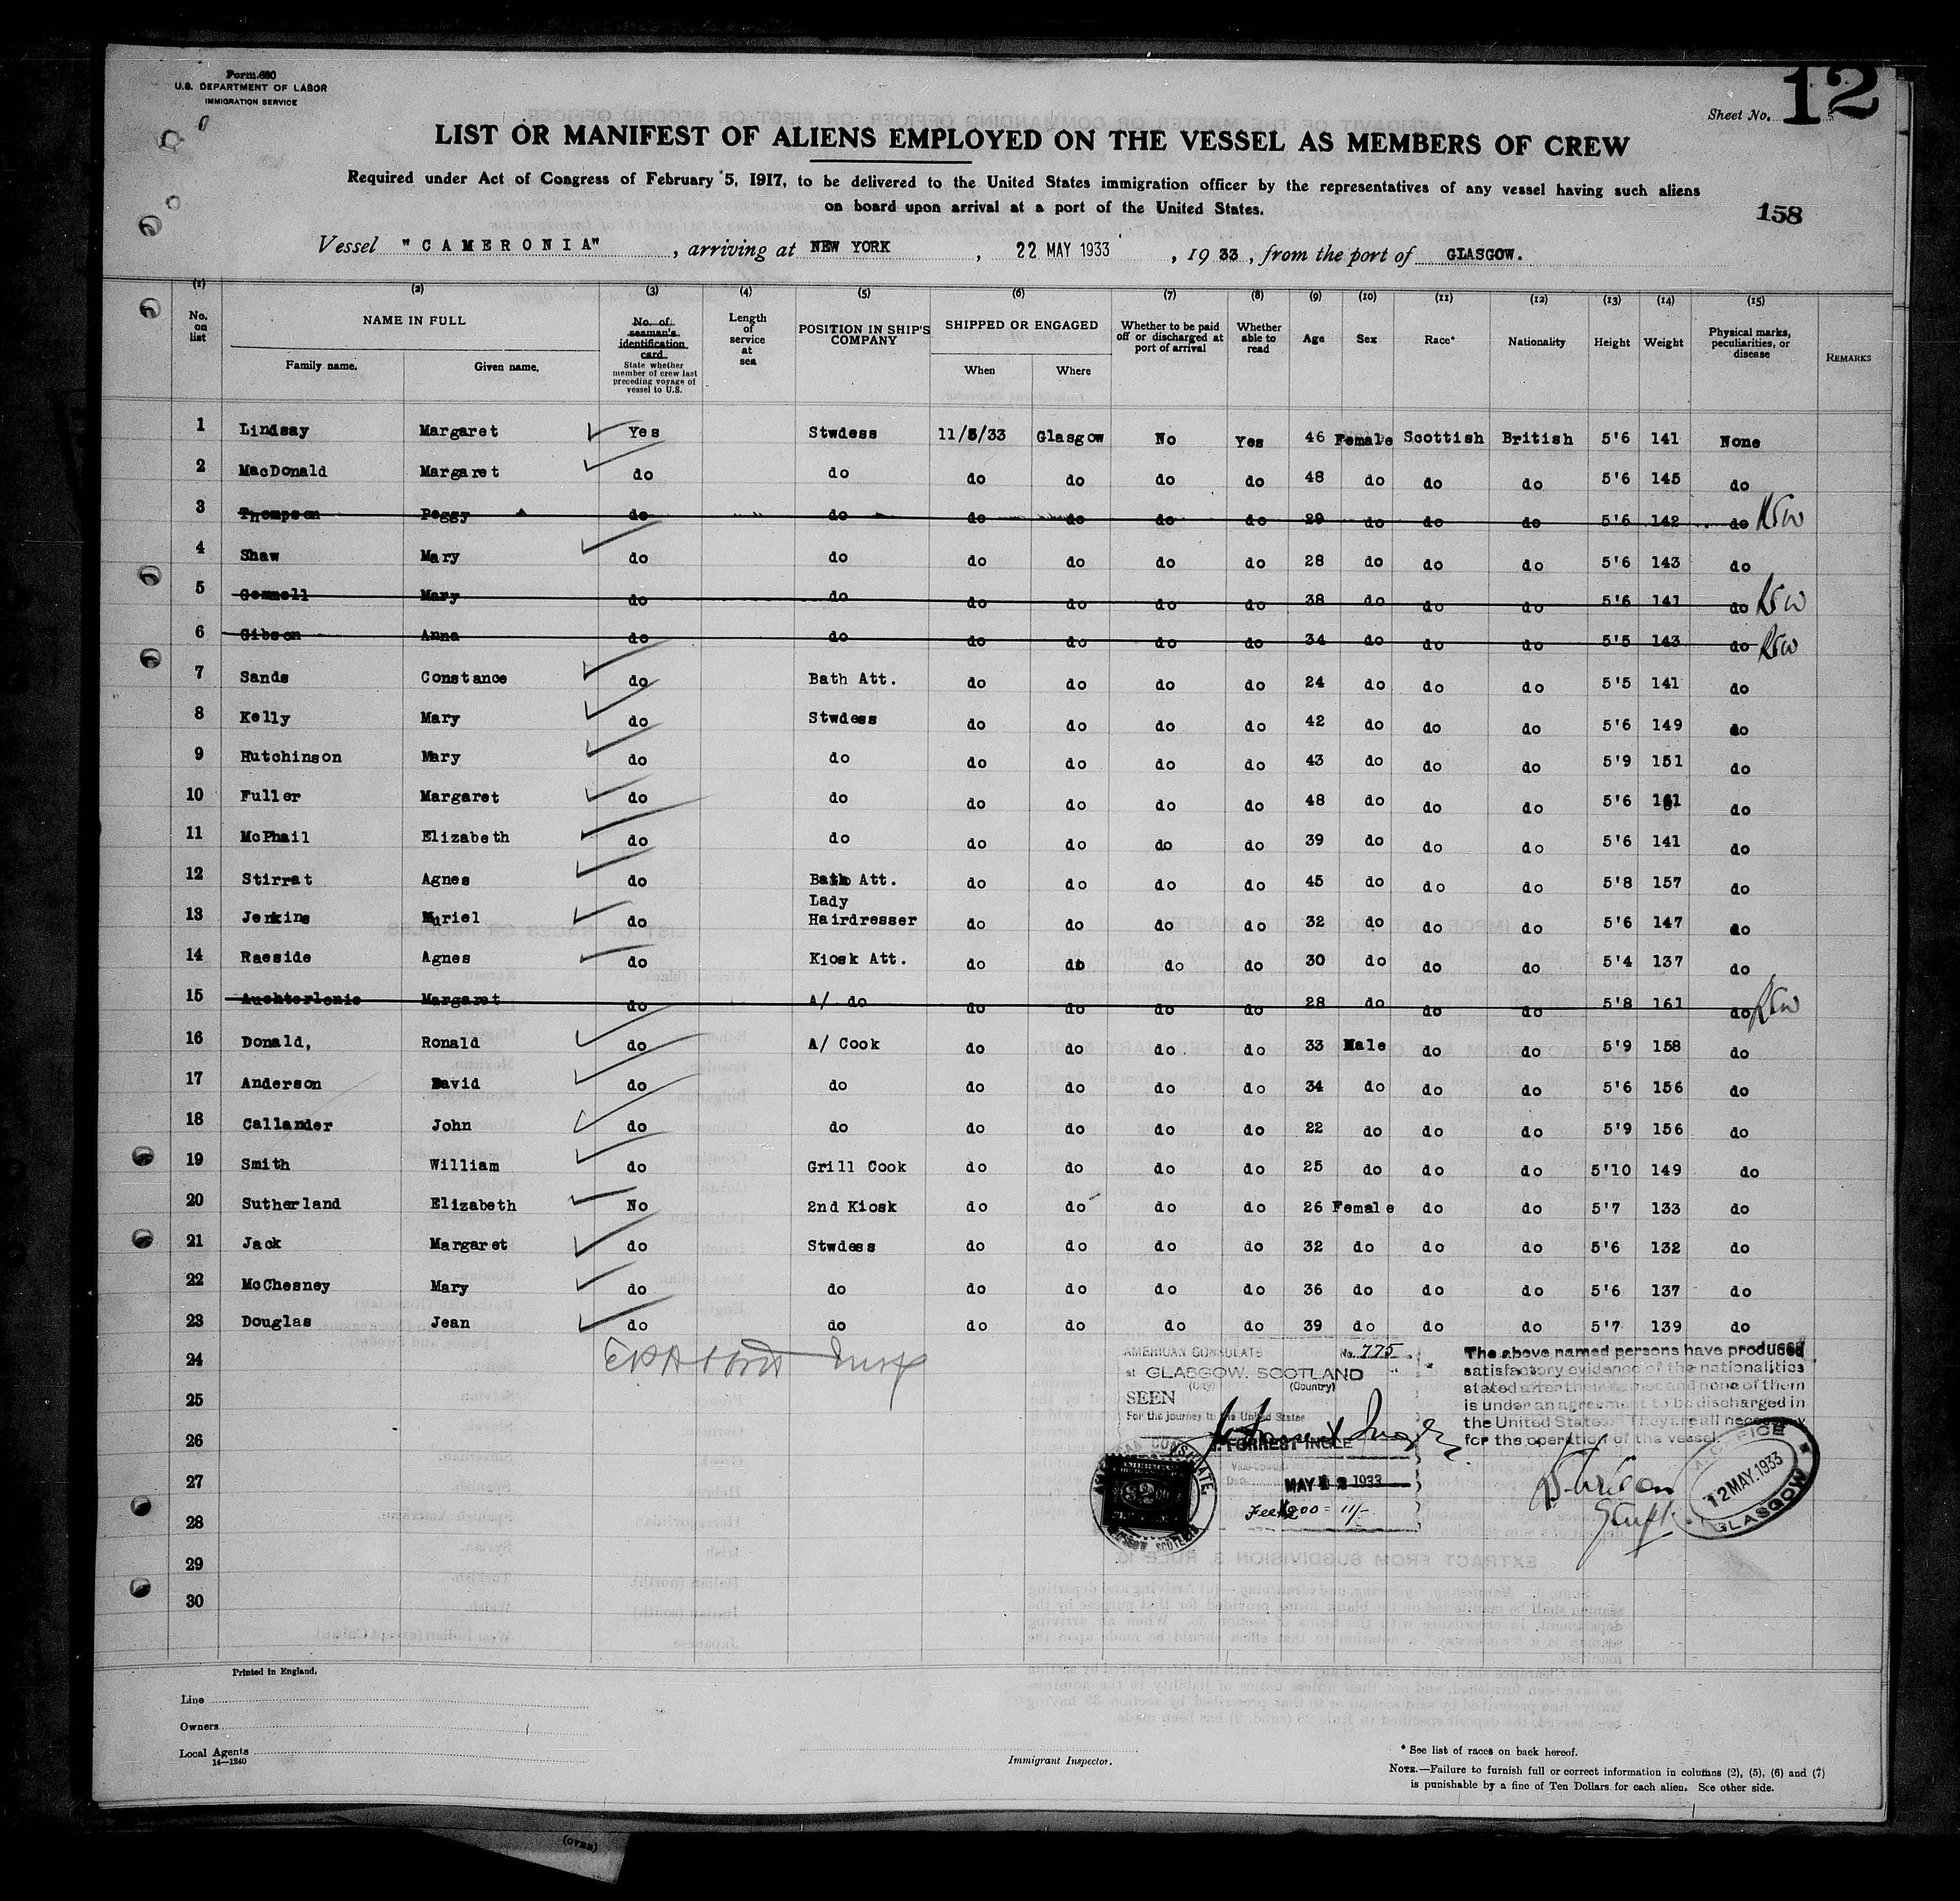 Form 680
U.S. DEPARTMENT OF LABOR
IMMIGRATION SERVICE
Sheet No. 12
LIST OR MANIFEST OF ALIENS EMPLOYED ON THE VESSEL AS MEMBERS OF CREW
Required under Act of Congress of February 5, 1917, to be delivered to the United States immigration officer by the representatives of any vessel having such aliens
on board upon arrival at a port of the United States.
158
Vessel "CAMERONIA", arriving at NEW YORK, 22 MAY 1933, 1933, from the port of GLASGOW.
(1) (2) (3) (4) (5) (6) (7) (8) (9) (10) (11) (12) (13) (14) (15)
No. on list
NAME IN FULL
Family name. Given name.
No. of seaman's identification card.
State whether member of crew last preceding voyage of vessel to U.S.
Length of service at sea
POSITION IN SHIP'S COMPANY
SHIPPED OR ENGAGED
When Where
Whether to be paid off or discharged at port of arrival
Whether able to read
Age Sex Race* Nationality Height Weight
Physical marks, peculiarities, or disease
REMARKS
1 Lindsay Margaret Yes Stwdess 11/5/33 Glasgow No Yes 46 Female Scottish British 5'6 141 None
2 MacDonald Margaret do do do do do do 48 do do do 5'6 145 do
3 Thompson Peggy do do do do do do 29 do do do 5'6 142 do
4 Shaw Mary do do do do do do 28 do do do 5'6 143 do
5 Gemmell Mary do do do do do do 38 do do do 5'6 141 do
6 Gibson Anna do do do do do do 34 do do do 5'5 143 do
7 Sands Constance do Bath Att. do do do do 24 do do do 5'5 141 do
8 Kelly Mary do Stwdess do do do do 42 do do do 5'6 149 do
9 Hutchinson Mary do do do do do do 43 do do do 5'9 151 do
10 Fuller Margaret do do do do do do 48 do do do 5'6 do
11 McPhail Elizabeth do do do do do do 39 do do do 5'6 141 do
12 Stirrat Agnes do Bath Att. do do do do 45 do do do 5'8 157 do
13 Jenkins Muriel do Lady Hairdresser do do do do 32 do do do 5'6 147 do
14 Raeside Agnes do Kiosk Att. do do do do 30 do do do 5'4 137 do
15 Auchterlonie Margaret do A/ do do do do do 28 do do do 5'8 161 do
16 Donald, Ronald do A/ Cook do do do do 33 Male do do 5'9 158 do
17 Anderson David do do do do do do 34 do do do 5'6 156 do
18 Callander John do do do do do do 22 do do do 5'9 156 do
19 Smith William do Grill Cook do do do do 25 do do do 5'10 149 do
20 Sutherland Elizabeth No 2nd Kiosk do do do do 26 Female do do 5'7 133 do
21 Jack Margaret do Stwdess do do do do 32 do do do 5'6 132 do
22 McChesney Mary do do do do do do 36 do do do 5'6 137 do
23 Douglas Jean do do do do do do 39 do do do 5'7 139 do
24
25
26
27
28
29
30
AMERICAN CONSULATE No. 775
at GLASGOW, SCOTLAND
(City) (Country)
SEEN
For the journey to the United States
FORREST INGLE
Vice-Consul
Date MAY 12 1933
Fee $2.00 = 11/-
The above named persons have produced
satisfactory evidence of the nationalities
stated after their names and none of them
is under an agreement to be discharged in
the United States. They are all necessary
for the operation of the vessel.
OFFICE
12 MAY. 1933
GLASGOW
Printed in England.
Line
Owners
Local Agents
14-1240
Immigrant Inspector.
* See list of races on back hereof.
NOTE.—Failure to furnish full or correct information in columns (2), (5), (6) and (7)
is punishable by a fine of Ten Dollars for each alien. See other side.
(OVER)